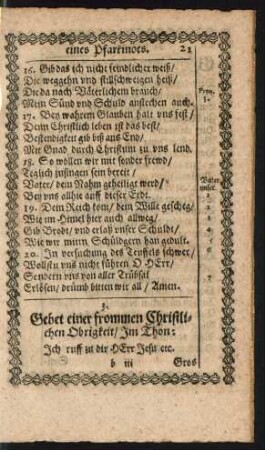 eines Pfarrinots. 21
16. Gib das ich nicht feindlicher weiß/
Die weggehn vnd stillschweigen heiß/
Die da nach Väterlichem brauch/
Mein Sünd vnd Schuld anstechen auch.
17. Bey wahrem Glauben halt vns fest/
Denn Christlich leben ist das best/
Bestendigkeit gib biß ans End/
Mit Gnad durch Christum zu vns lend.
18. So wollen wir mit sonder frewd/
Teglich zusingen sein bereit/
Vater/ dein Nahm geheiliget werd/
Bey vns allhie auff dieser Erdt.
19. Dein Reich kom/ dein Wille gescheh/
Wie im Himel hier auch allweg/
Gib Brodt/ vnd erlaß vnser Schuldt/
Wie wir vnsern Schüldgern han gedult.
20. In versuchung des Teuffels schwer/
Wollstu vns nicht führen O HErr/
Sondern vns von aller Trübsal
Erlösen/ drümb bitten wir all/ Amen.
3.
Gebet einer frommen Christli-
chen Obrigkeit/ Im Thon:
Ich ruff zu dir HErr Jesu etc.
b iij Gros
Vater
vnser.
1
2
3
4
5
6